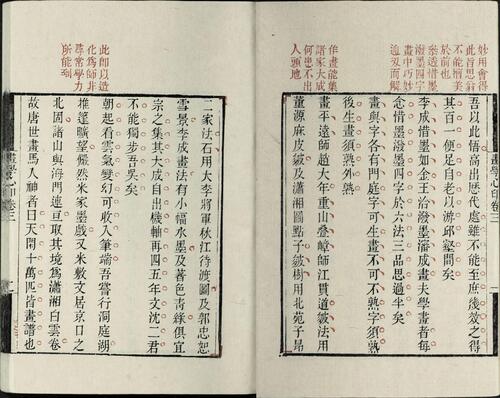 妙用會得
此旨思翁
不能擅美
於前也
參透惜墨
潑墨四字
畫中巧妙
迎刃而解
作畫能集
諸家大成
何患不出
人頭地
吾以此悟高出歷代處雖不能至庶幾效之得
其百一便足自老以游邱壑間矣
李成惜墨如金王洽潑墨瀋成畫夫學畫者每
念惜墨潑墨四字於六法三品思過半矣
畫與字各有門庭字可生畫不可不熟字須熟
後生畫須熟外熟
畫平遠師趙大年重山疊嶂師江貫道皴法用
董源麻皮皴及瀟湘圖點子皴樹用北苑子昂
畫學心印卷三
此即以造
化為師非
尋常學力
所能到
二家法石用大李將軍秋江待渡圖及郭忠恕
雪景李成畫法有小幅水墨及著色青綠俱宜
宗之集其大成自出機軸再四五年文沈二君
不能獨步吾吳矣
朝起看雲氣變幻可收入筆端吾嘗行洞庭湖
推篷曠望儼然米家墨戲又米敷文居京口之
北固諸山與海門連亘取其境為瀟湘白雲卷
故唐世畫馬入神者曰天閑十萬匹皆畫譜也